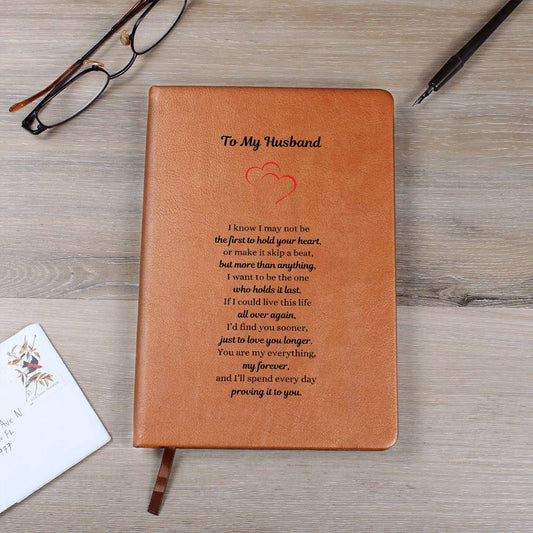 To My Husband
I know I may not be
the first to hold your heart,
or make it skip a beat,
but more than anything,
I want to be the one
who holds it last.
If I could live this life
all over again,
I'd find you sooner,
just to love you longer.
You are my everything,
my forever,
and I'll spend every day
proving it to you.
Ave N
FL